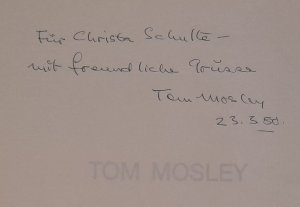 Für Christa Schulte –
mit freundliche Grüsse
Tom Mosley
23.3.80.
TOM MOSLEY